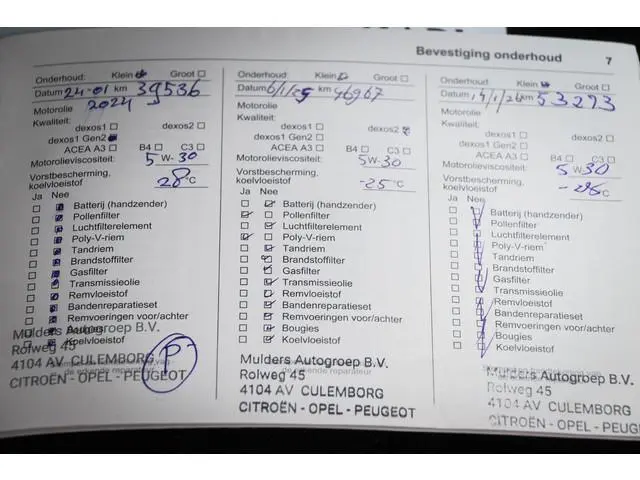 Bevestiging onderhoud 7
Onderhoud: Klein Groot
Datum 24-01 km 39536
2024
Motorolie
Kwaliteit:
dexos1
dexos1 Gen2 dexos2
ACEA A3 B4 C3
Motorolieviscositeit: 5 W- 30
Vorstbescherming,
koelvloeistof -28 °C
Ja Nee
Batterij (handzender)
Pollenfilter
Luchtfilterelement
Poly-V-riem
Tandriem
Brandstoffilter
Gasfilter
Transmissieolie
Remvloeistof
Bandenreparatieset
Remvoeringen voor/achter
Bougies
Koelvloeistof
Mulders Autogroep B.V.
Rolweg 45
4104 AV CULEMBORG
CITROËN - OPEL - PEUGEOT
P
Onderhoud: Klein Groot
Datum 6/1/25 km 46967
Motorolie
Kwaliteit:
dexos1 dexos2
dexos1 Gen2
ACEA A3 B4 C3
Motorolieviscositeit: 5 W- 30
Vorstbescherming,
koelvloeistof -25 °C
Ja Nee
Batterij (handzender)
Pollenfilter
Luchtfilterelement
Poly-V-riem
Tandriem
Brandstoffilter
Gasfilter
Transmissieolie
Remvloeistof
Bandenreparatieset
Remvoeringen voor/achter
Bougies
Koelvloeistof
Mulders Autogroep B.V.
Rolweg 45
4104 AV CULEMBORG
CITROËN - OPEL - PEUGEOT
Onderhoud: Klein Groot
Datum 14/1/26 km 53293
Motorolie
Kwaliteit:
dexos1 dexos2
dexos1 Gen2
ACEA A3 B4 C3
Motorolieviscositeit: 5 W- 30
Vorstbescherming,
koelvloeistof °C
Ja Nee
Batterij (handzender)
Pollenfilter
Luchtfilterelement
Poly-V-riem
Tandriem
Brandstoffilter
Gasfilter
Transmissieolie
Remvloeistof
Bandenreparatieset
Remvoeringen voor/achter
Bougies
Koelvloeistof
Mulders Autogroep B.V.
Rolweg 45
4104 AV CULEMBORG
CITROËN - OPEL - PEUGE